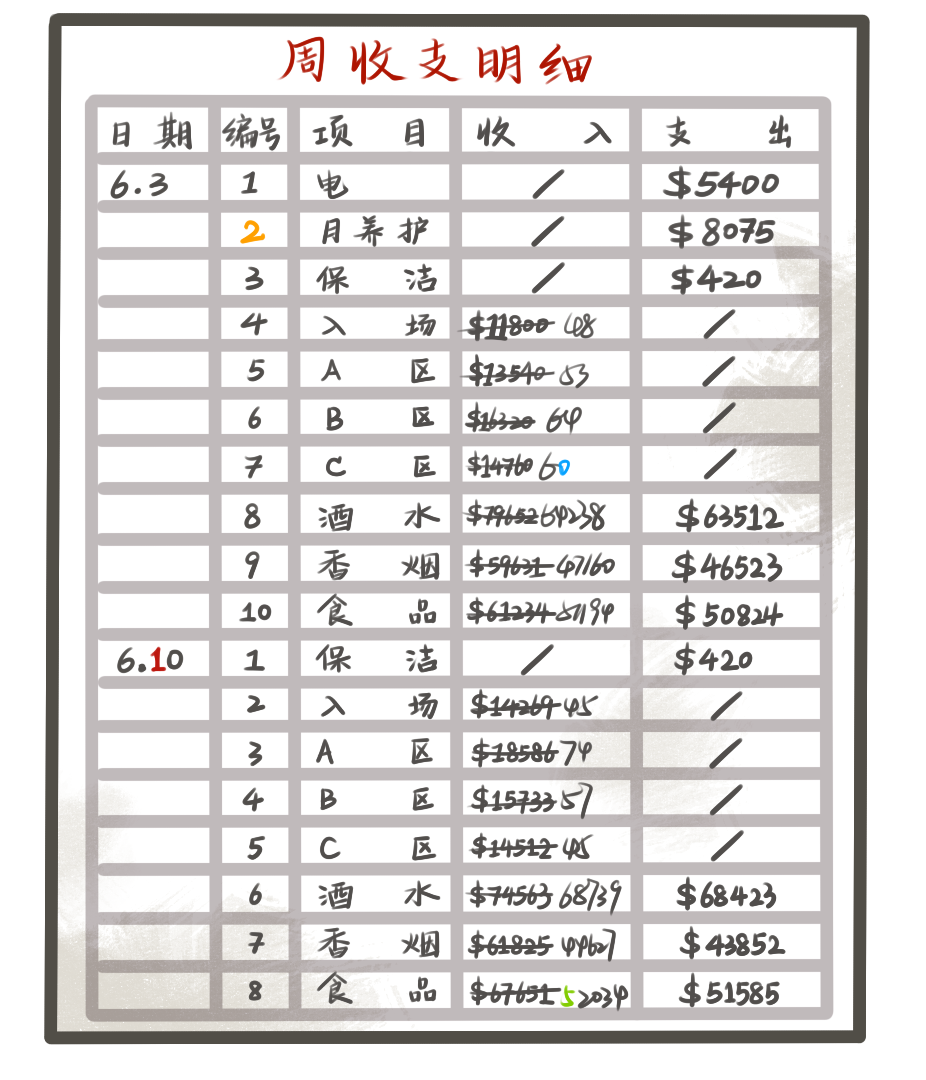 周收支明细
日期 编号 项目 收入 支出
6.3 1 电 / $5400
2 月养护 / $8075
3 保洁 / $420
4 入场 $11800 48 /
5 A区 $13540 53 /
6 B区 $16320 64 /
7 C区 $14760 60 /
8 酒水 $79652 64238 $63512
9 香烟 $59631 47160 $46523
10 食品 $61234 51194 $50824
6.10 1 保洁 / $420
2 入场 $14269 45 /
3 A区 $18586 74 /
4 B区 $15733 57 /
5 C区 $14512 45 /
6 酒水 $74563 68739 $68423
7 香烟 $61825 44627 $43852
8 食品 $67651 52034 $51585